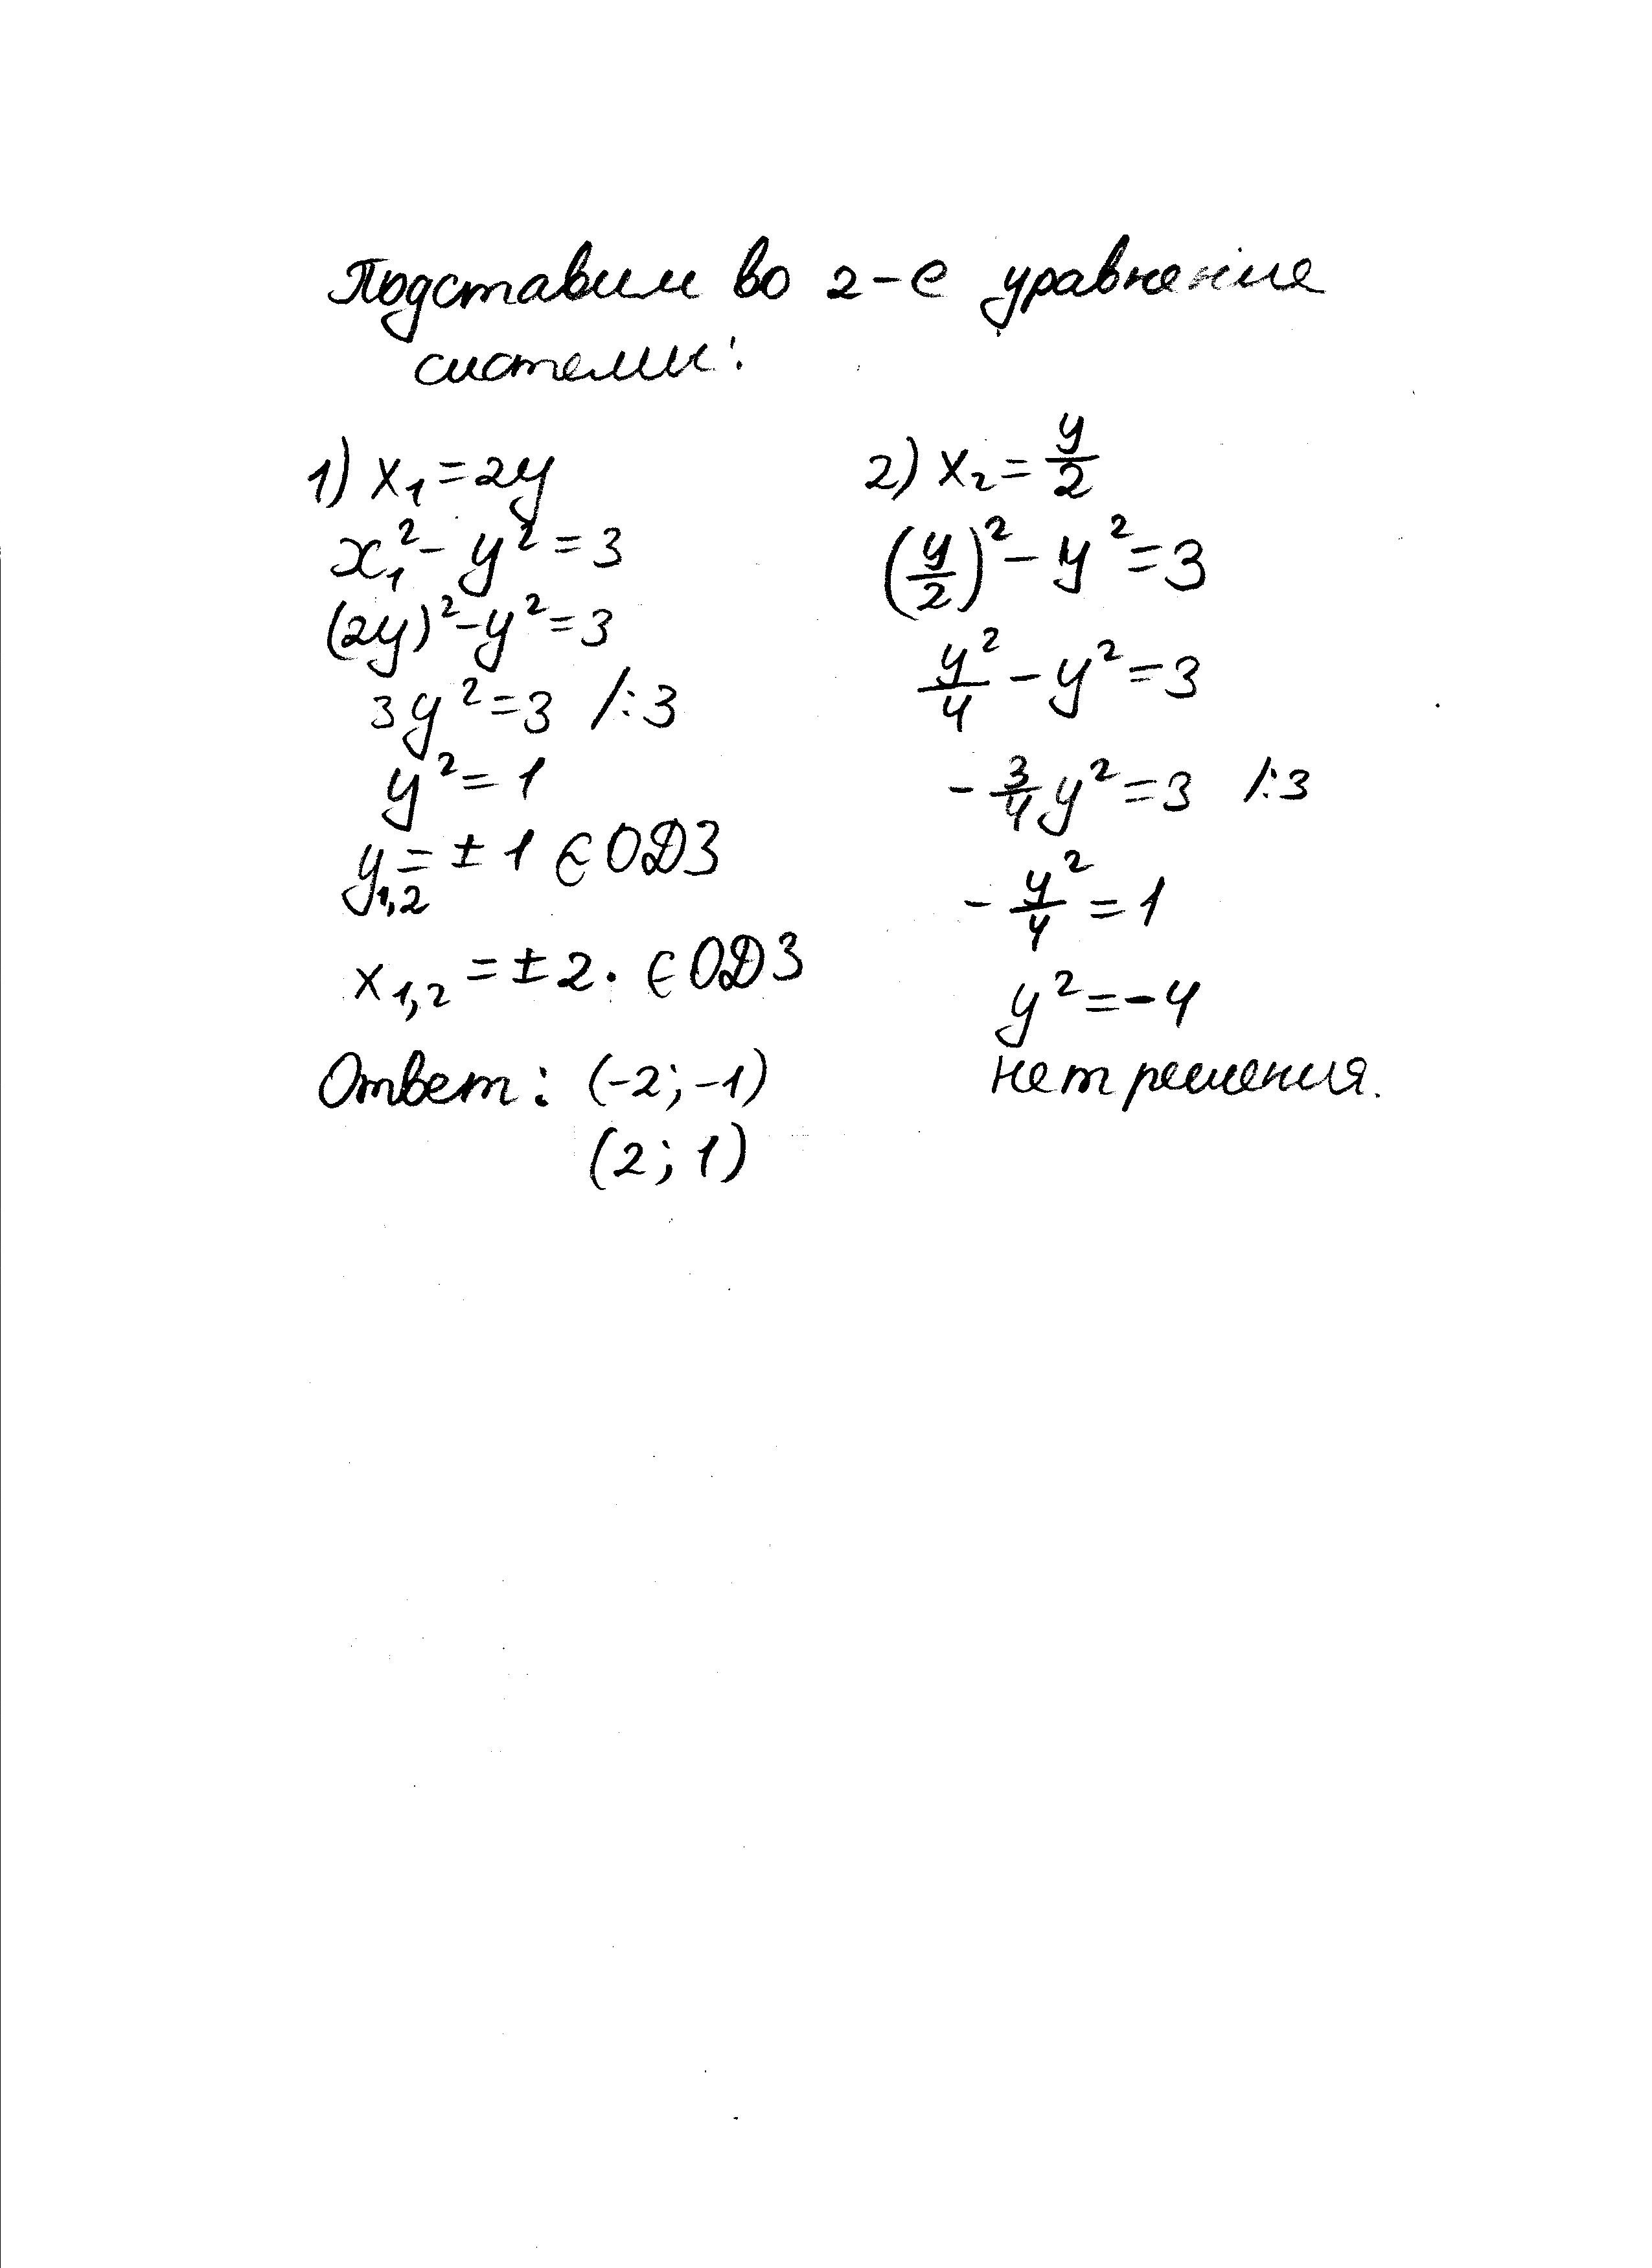 Подставим во 2-е уравнение
системы:
1) x₁ = 2y
x₁² - y² = 3
(2y)² - y² = 3
3y² = 3 /:3
y² = 1
y₁,₂ = ± 1 ∈ ОДЗ
x₁,₂ = ± 2. ∈ ОДЗ
Ответ: (-2; -1)
(2; 1)
2) x₂ = y/2
(y/2)² - y² = 3
y²/4 - y² = 3
- 3/4 y² = 3 /:3
- y²/4 = 1
y² = -4
нет решения.